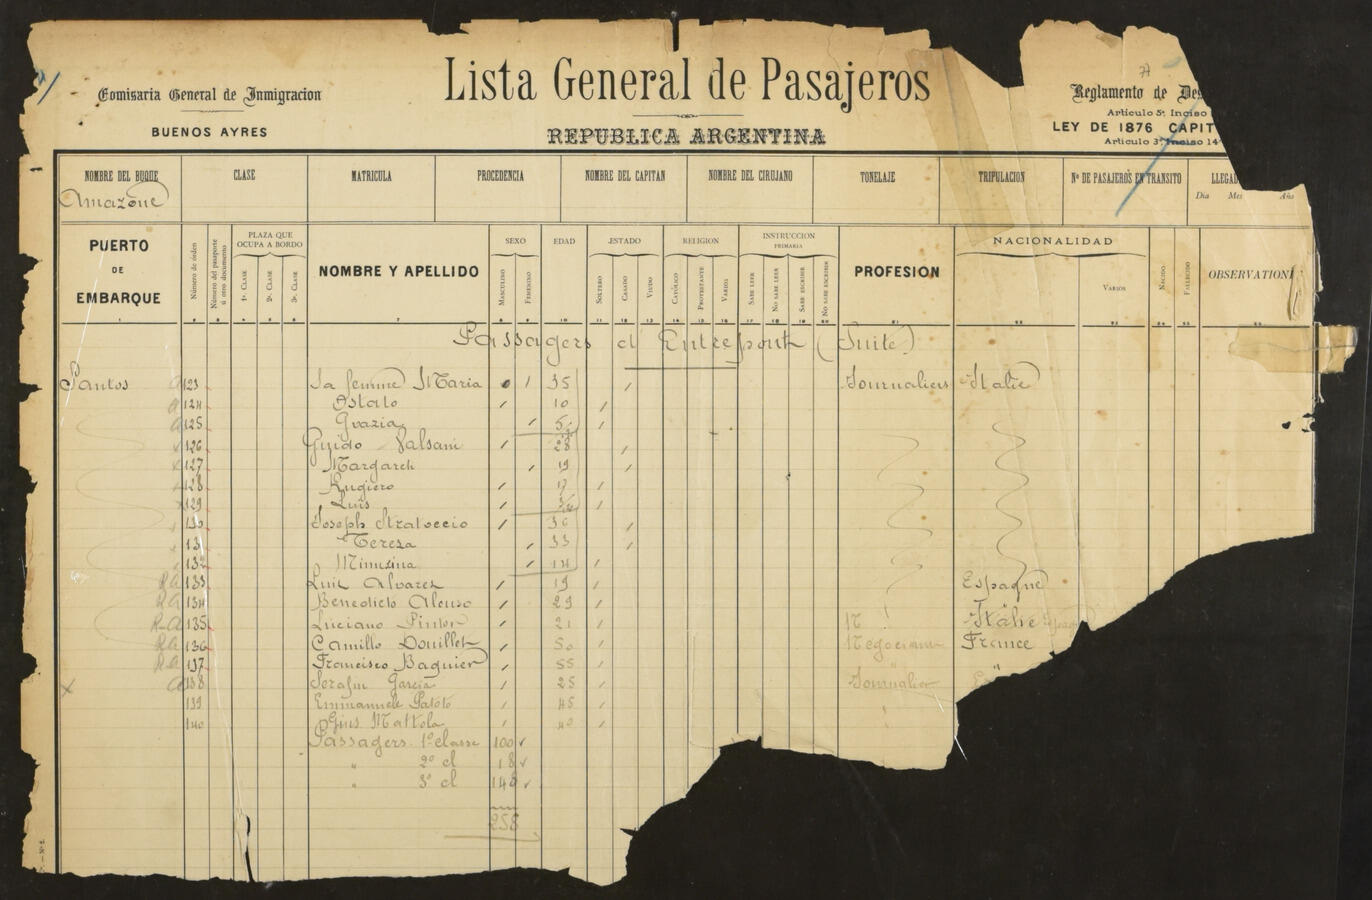 Comisaria General de Inmigracion
BUENOS AYRES
Lista General de Pasajeros
REPUBLICA ARGENTINA
Reglamento de Des
Articulo 5º Inciso
LEY DE 1876 CAPIT
Articulo 3º Inciso 14
NOMBRE DEL BUQUE CLASE MATRICULA PROCEDENCIA NOMBRE DEL CAPITAN NOMBRE DEL CIRUJANO TONELAJE TRIPULACION Nº DE PASAJEROS EN TRANSITO LLEGAD
Dia Mes Año
Amazône
PUERTO DE EMBARQUE Número de órden Número del pasaporte ú otro documento PLAZA QUE OCUPA A BORDO 1ª CLASE 2ª CLASE 3ª CLASE NOMBRE Y APELLIDO SEXO MASCULINO FEMENINO EDAD ESTADO SOLTERO CASADO VIUDO RELIGION CATÓLICO PROTESTANTE VARIOS INSTRUCCION PRIMARIA SABE LEER NO SABE LEER SABE ESCRIBIR NO SABE ESCRIBIR PROFESION NACIONALIDAD VARIOS NACIDO FALLECIDO OBSERVATIONE
Passagers d'Entrepont (Suite)
Santos a 123 Sa femme Maria 35 Journaliers Italie
a 124 Ostato 10
a 125 Grazia 5
126 Guido Valsani 28
127 Margareh 19
128 Rugiero 17
129 Luis
130 Joseph Stratoccio 36
13 Teresa 33
132 Minuzina 14
RA 133 Luiz Alvarez 19 Espagne
RA 134 Benedicto Alonso 29
RA 135 Luciano Pintor 21 Italie
RA 136 Camillo Douillet 50 Negociant France
RA 137 Francisco Baguier 55 "
x a 138 Serafin Garcia 25 Journalier
139 Emmanuele Patoto 45
140 Gius. Mattola 40
Passagers 1º classe 100
" 2º cl 18
" 3º cl 140
258